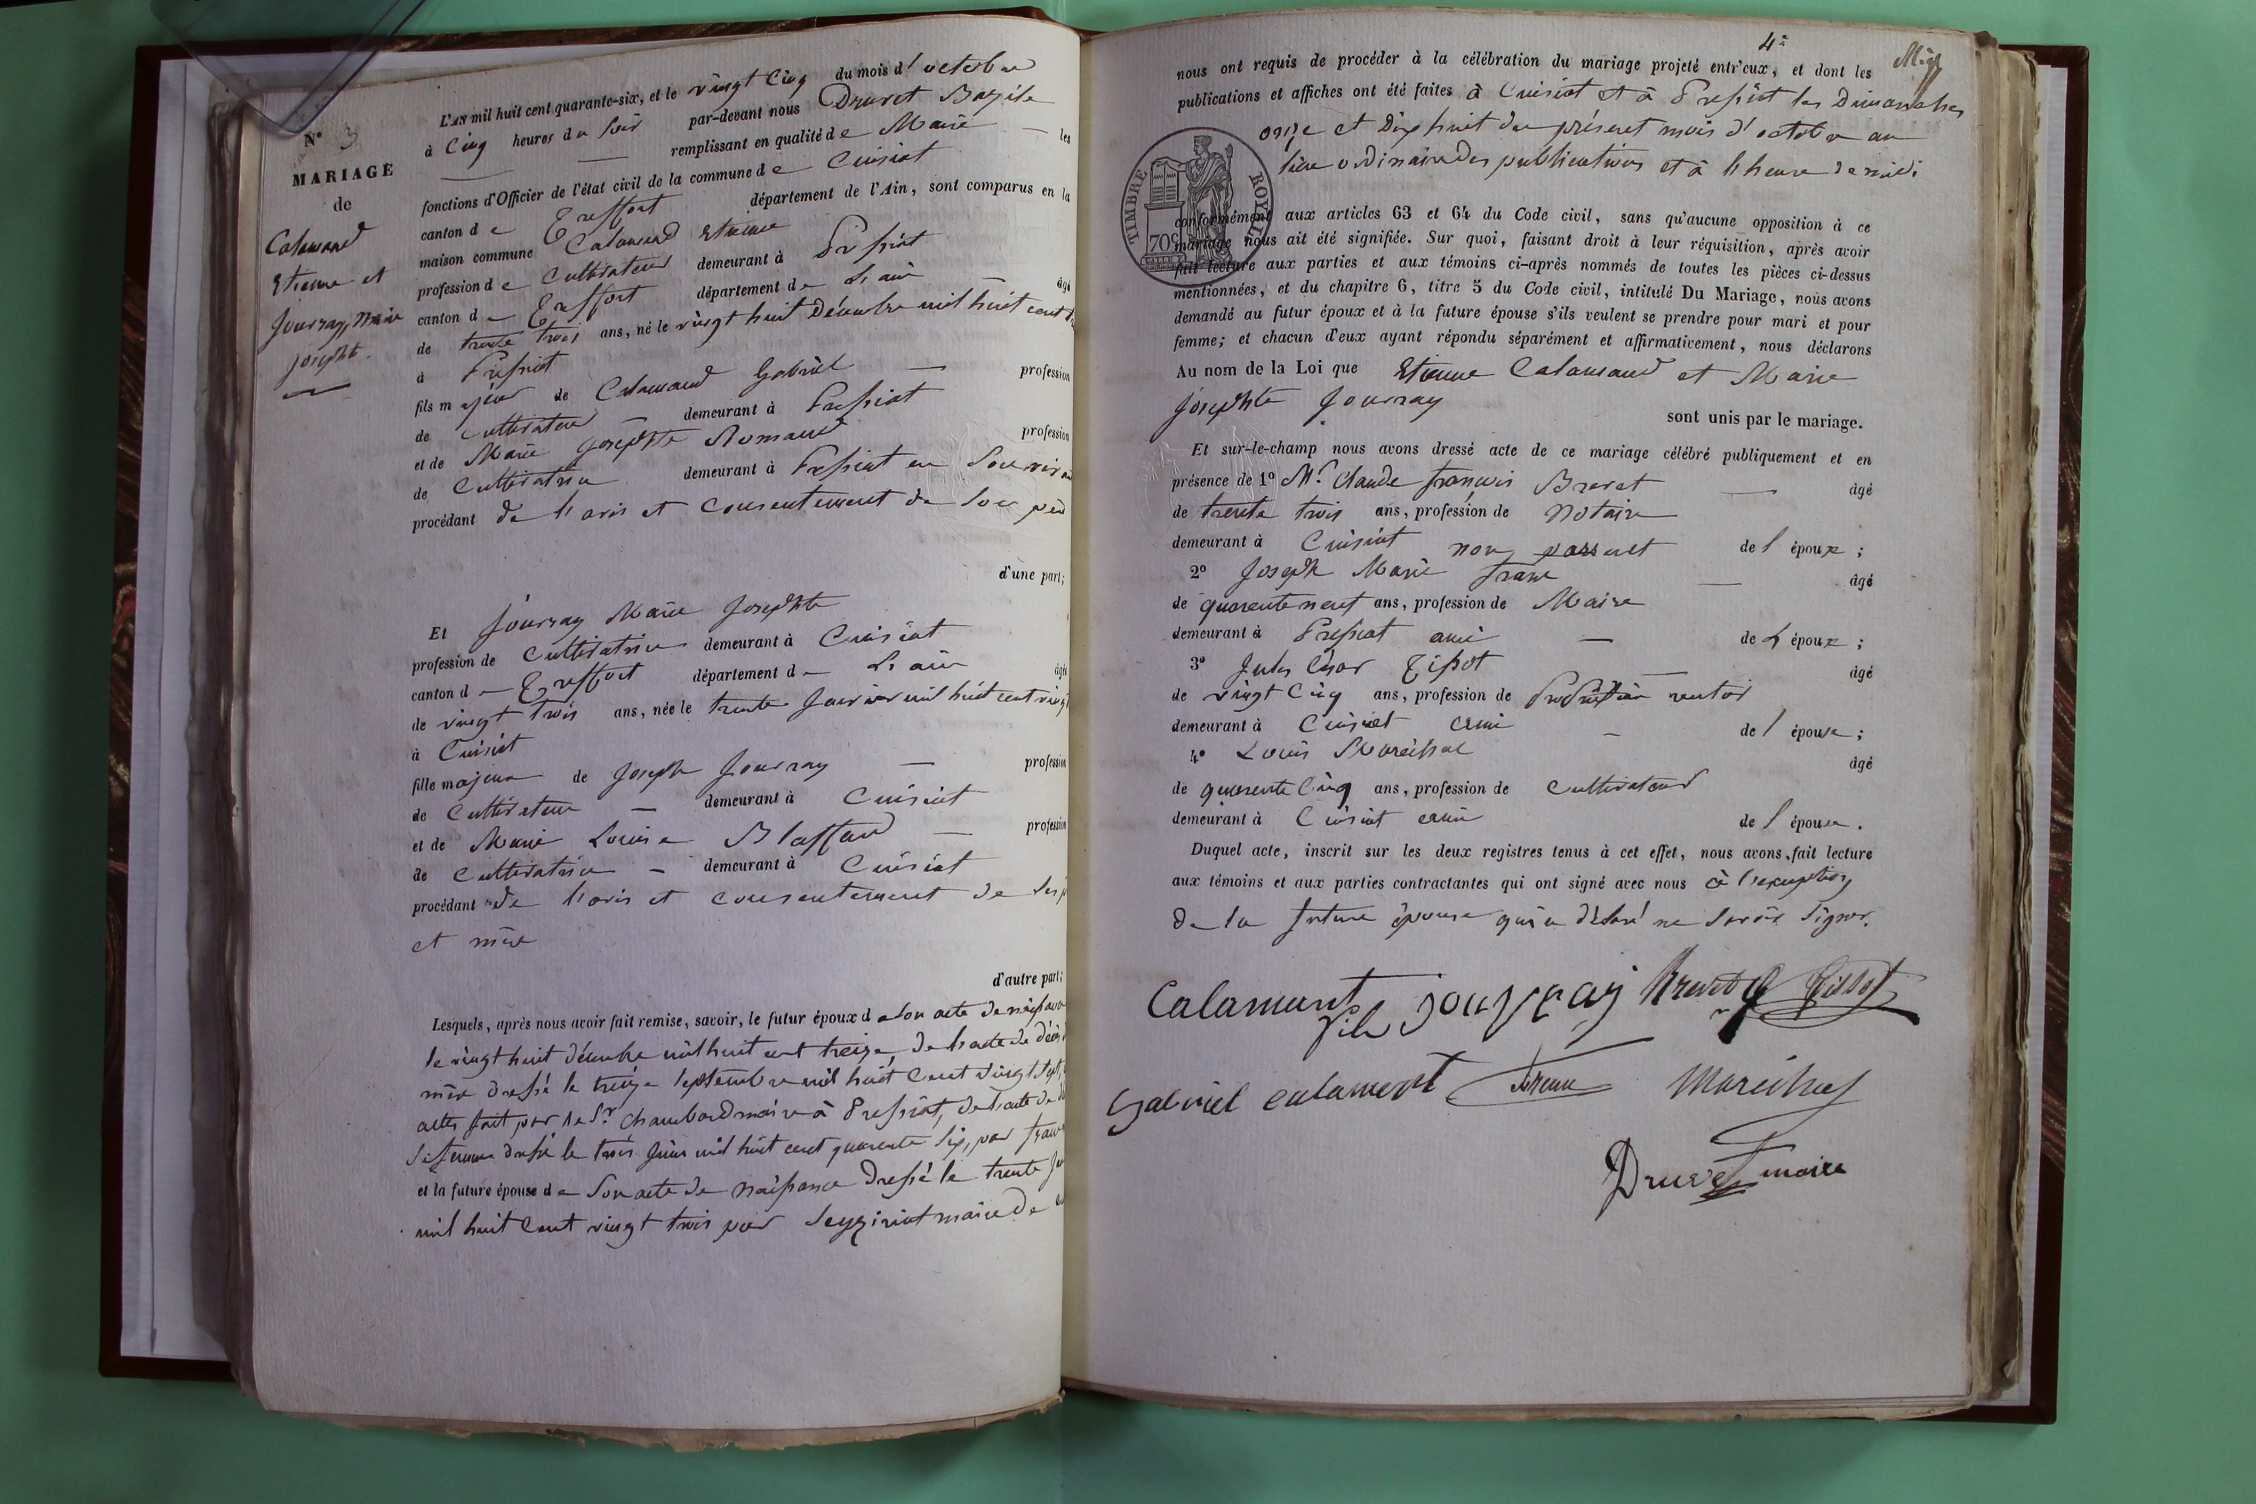 N° 3
MARIAGE
de
Calamand
Etienne et
Jouvray, Marie
Josephte.
L'AN mil huit cent quarante-six, et le vingt Cinq du mois d'octobre
à Cinq heures du Soir par-devant nous Druvet Bazile
remplissant en qualité de Maire les
fonctions d'Officier de l'état civil de la commune de Cuisiat
canton de Treffort département de l'Ain, sont comparus en la
maison commune Calamand Etienne
profession de Cultivateur demeurant à Pressiat
canton de Treffort département de L'ain âgé
de trente trois ans, né le vingt huit Décembre mil huit cent
à Pressiat
fils majeur de Calamand Gabriel profession
de Cultivateur demeurant à Pressiat
et de Marie Josephte Romand profession
de Cultivatrice demeurant à Pressiat en Son vivant
procédant de l'avis et consentement de Son père
d'une part;
Et Jouvray Marie Josephte
profession de Cultivatrice demeurant à Cuisiat
canton de Treffort département de L'ain âgée
de vingt trois ans, née le trente Janvier mil huit cent vingt
à Cuisiat
fille majeure de Joseph Jouvray profession
de Cultivateur demeurant à Cuisiat
et de Marie Louise Blaffard profession
de Cultivatrice demeurant à Cuisiat
procédant de l'avis et consentement de Ses
et mère
d'autre part;
Lesquels, après nous avoir fait remise, savoir, le futur époux de Son acte de naissance
le vingt huit décembre mil huit cent treize, de l'acte de décès
mère dressé le treize Septembre mil huit Cent vingt Sept,
actes fait par le Sr. Chambard maire à Pressiat, de l'acte de
Sa femme dressé le trois Juin mil huit cent quarante Six, par
et la future épouse de Son acte de naissance dressé le trente
mil huit Cent vingt trois par maire de
4e
nous ont requis de procéder à la célébration du mariage projeté entr'eux, et dont les
publications et affiches ont été faites à Cuisiat et à Pressiat les Dimanches
onze et Dix huit du présent mois d'octobre au
lieu ordinaire des publications et à l'heure de midi
TIMBRE ROYAL
70c
conformément aux articles 63 et 64 du Code civil, sans qu'aucune opposition à ce
mariage nous ait été signifiée. Sur quoi, faisant droit à leur réquisition, après avoir
fait lecture aux parties et aux témoins ci-après nommés de toutes les pièces ci-dessus
mentionnées, et du chapitre 6, titre 5 du Code civil, intitulé Du Mariage, nous avons
demandé au futur époux et à la future épouse s'ils veulent se prendre pour mari et pour
femme; et chacun d'eux ayant répondu séparément et affirmativement, nous déclarons
Au nom de la Loi que Etienne Calamand et Marie
Josephte Jouvray
sont unis par le mariage.
Et sur-le-champ nous avons dressé acte de ce mariage célébré publiquement et en
présence de 1° Mr. Claude françois Brevet âgé
de trente trois ans, profession de Notaire
demeurant à Cuisiat non parent de l'époux;
2° Joseph Marie âgé
de quarente neuf ans, profession de Maire
demeurant à Pressiat ami de L'époux;
3° Jules César Tissot âgé
de vingt Cinq ans, profession de Propriétaire rentier
demeurant à Cuisiat ami de l'épouse;
4° Louis Maréchal âgé
de quarente Cinq ans, profession de Cultivateur
demeurant à Cuisiat ami de l'épouse.
Duquel acte, inscrit sur les deux registres tenus à cet effet, nous avons fait lecture
aux témoins et aux parties contractantes qui ont signé avec nous à l'exception
de la future épouse qui a déclaré ne Savoir Signer.
Calamant fils Jouvray Brevet Tissot
Gabriel calament Maréchal
Druvet maire